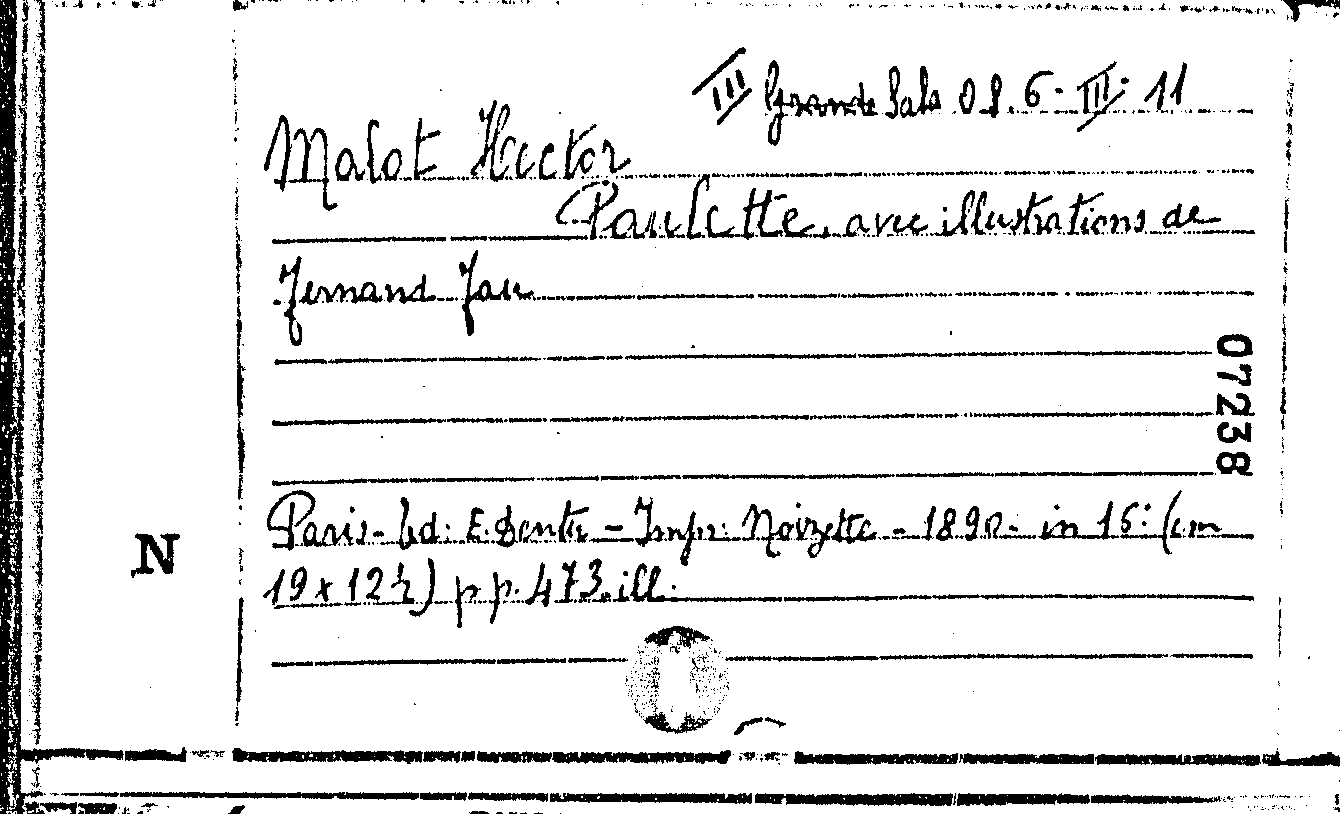 III Grande Sala O8. 6- III- 11
Malot Hector
Paulette, avec illustrations de
Fernand Fau
07238
Paris- Ed: E. Dentu - Impr: Noizette - 1890- in 16: (cm
N
19 x 12½) pp. 473. ill.